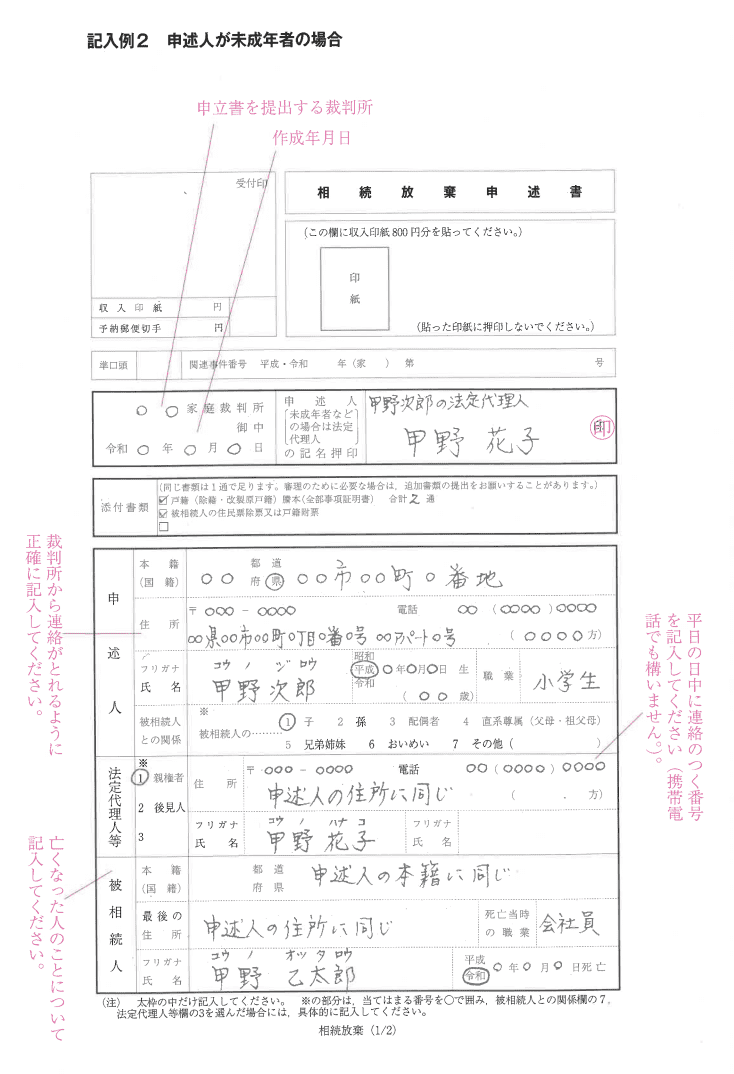 記入例2 申述人が未成年者の場合
申立書を提出する裁判所
作成年月日
受付印
相続放棄申述書
(この欄に収入印紙800円分を貼ってください。)
印
紙
収入印紙 円
予納郵便切手 円
(貼った印紙に押印しないでください。)
準口頭 関連事件番号 平成・令和 年(家 )第 号
○○家庭裁判所
御中
令和 ○ 年 ○ 月 ○ 日
申述人
未成年者など
の場合は法定
代理人
の記名押印
甲野次郎の法定代理人
甲野 花子
印
添付書類
(同じ書類は1通で足ります。審理のために必要な場合は,追加書類の提出をお願いすることがあります。)
☑ 戸籍(除籍・改製原戸籍)謄本(全部事項証明書) 合計2通
☑ 被相続人の住民票除票又は戸籍附票
□
裁判所から連絡がとれるように
正確に記入してください。
申述人
本籍
(国籍)
都道
府県
○○ ○○市○○町○番地
住所
〒 ○○○ - ○○○○ 電話 ○○(○○○○)○○○○
○○県○○市○○町○丁目○番○号 ○○アパート○号
(○○○○方)
フリガナ コウノ ジロウ
氏名 甲野次郎
昭和
平成
令和
○年○月○日 生
(○○歳)
職業 小学生
被相続人
との関係
※
被相続人の………
1 子 2 孫 3 配偶者 4 直系尊属(父母・祖父母)
5 兄弟姉妹 6 おいめい 7 その他( )
平日の日中に連絡のつく番号
を記入してください(携帯電
話でも構いません。)。
法定代理人等
※
1 親権者
2 後見人
3
住所
〒 ○○○ - ○○○○ 電話 ○○(○○○○)○○○○
申述人の住所に同じ
( 方)
フリガナ コウノ ハナコ
氏名 甲野 花子
フリガナ
氏名
亡くなった人のことについて
記入してください。
被相続人
本籍
(国籍)
都道
府県
申述人の本籍に同じ
最後の
住所
申述人の住所に同じ
死亡当時
の職業
会社員
フリガナ コウノ オツタロウ
氏名 甲野 乙太郎
平成
令和
○年○月○日死亡
(注) 太枠の中だけ記入してください。 ※の部分は,当てはまる番号を○で囲み,被相続人との関係欄の7,
法定代理人等欄の3を選んだ場合には,具体的に記入してください。
相続放棄(1/2)